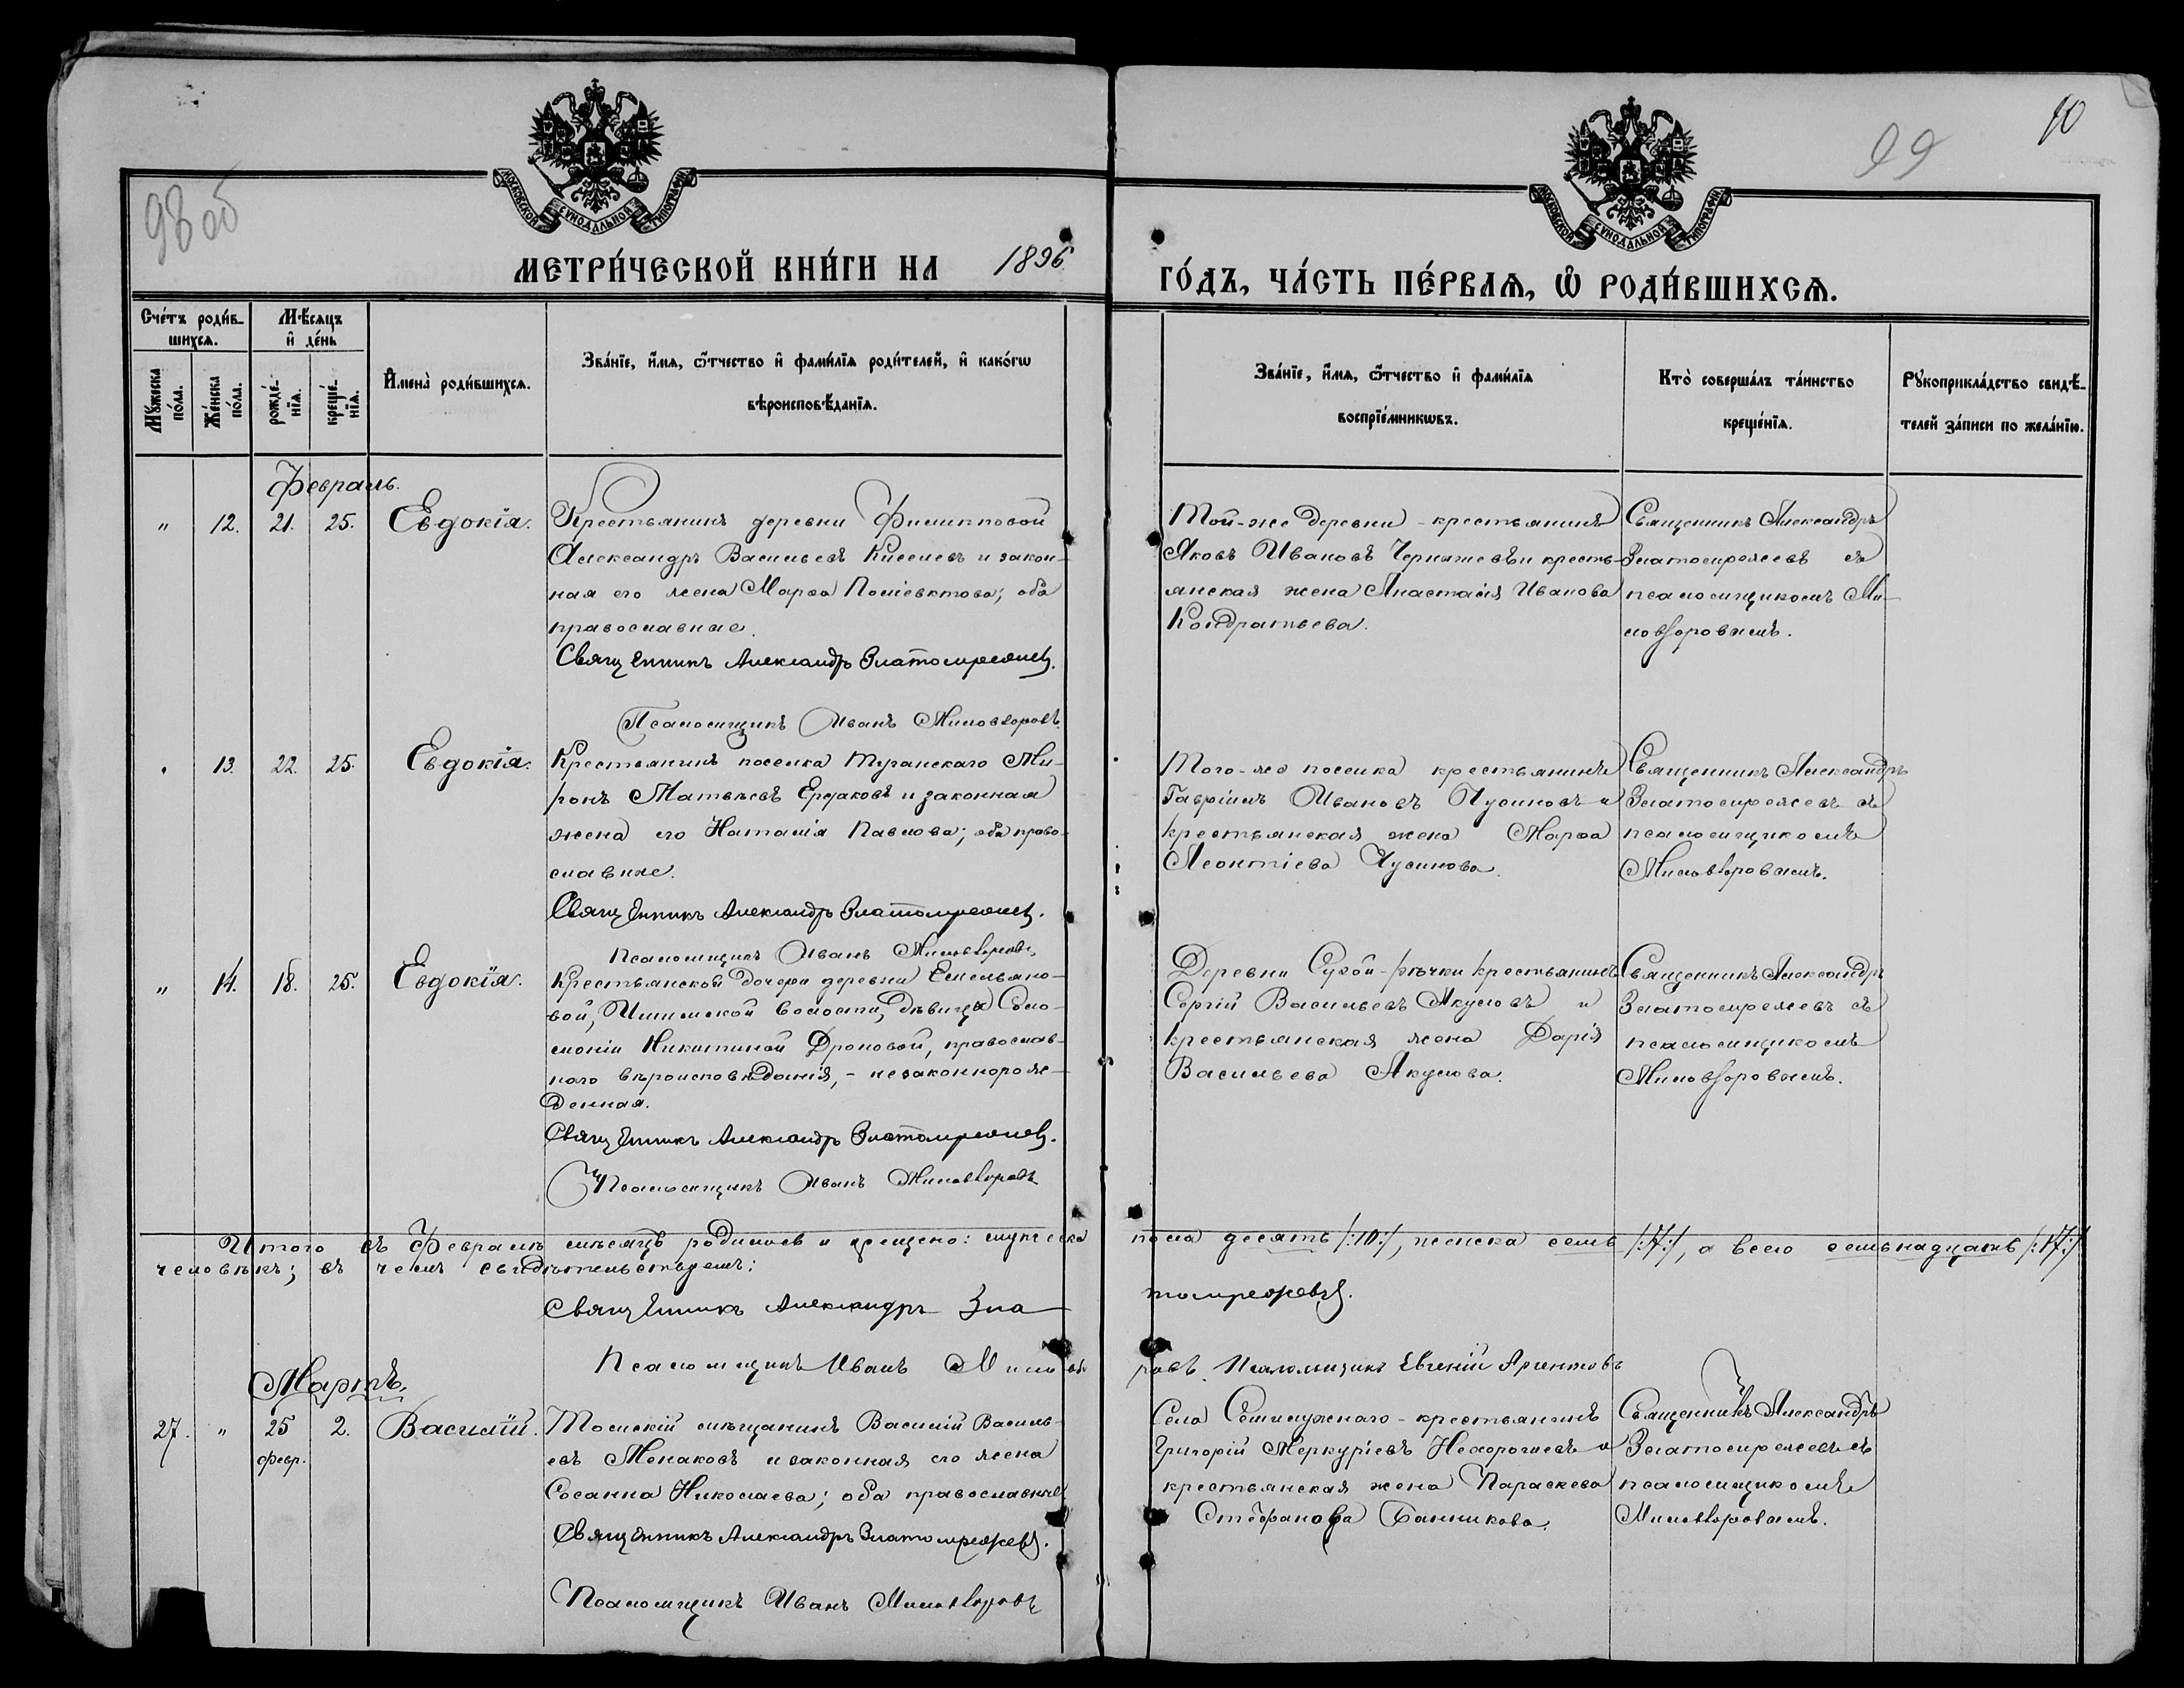 98 об
99
10
МОСКОВСКОЙ СѴНОДАЛЬНОЙ ТИПОГРАФІИ
МОСКОВСКОЙ СѴНОДАЛЬНОЙ ТИПОГРАФІИ
МЕТРИ́ЧЕСКОЙ КНИ́ГИ НА 1896 ГО́ДЪ, ЧА́СТЬ ПЕ́РВАѦ, Ѽ РОДИ́ВШИХСѦ.
Сче́тъ роди́в-
шихсѧ.
Мѣ́сѧцъ
и҆ де́нь
Мꙋ́жеска
по́ла.
Же́нска
по́ла.
рожде́-
нїѧ.
креще́-
нїѧ.
И҆мена̀ роди́вшихсѧ.
Зва́нїе, и҆́мѧ, ѻ҆́тчество и҆ фами́лїѧ роди́телей, и҆ како́гѡ
вѣроисповѣ́данїѧ.
Зва́нїе, и҆́мѧ, ѻ҆́тчество и҆ фами́лїѧ
воспрїе́мникѡвъ.
Кто̀ соверша́лъ та́инство
креще́нїѧ.
Рꙋкоприкла́дство свидѣ́-
телей за́писи по жела́нїю.
Февраль.
" 12. 21. 25. Евдокія.
Крестьянинъ деревни Филипповой
Александръ Васильевъ Киселевъ и закон-
ная его жена Марѳа Поліевктова; оба
православные.
Священникъ Александръ Златомрежев.
Псаломщикъ Иванъ Миловзоровъ.
Той-же деревни крестьянинъ
Яковъ Ивановъ и кресть-
янская жена Анастасія Иванова
Кондратьева.
Священникъ Александръ
Златомрежевъ съ
псаломщикомъ Ми-
ловзоровымъ.
" 13. 22. 25. Евдокія.
Крестьянинъ поселка Туганскаго Ми-
ронъ Матвѣевъ Ермаковъ и законная
жена его Наталія Павлова; оба право-
славные.
Священникъ Александръ Златомрежев.
Псаломщикъ Иванъ Миловзоровъ
Того-же поселка крестьянинъ
Гавріилъ Ивановъ и
крестьянская жена Марѳа
Леонтіева
Священникъ Александръ
Златомрежевъ съ
псаломщикомъ
Миловзоровымъ.
" 14. 18. 25. Евдокія.
Крестьянской дочери деревни Емельяно-
вой, Ишимской волости, дѣвицы Соло-
моніи Никитиной Дроновой, православ-
наго вѣроисповѣданія, - незаконнорож-
денная.
Священникъ Александръ Златомрежев.
Псаломщикъ Иванъ Миловзоровъ
Деревни Сухой-рѣчки крестьянинъ
Сергій Васильевъ Акуловъ и
крестьянская жена Дарія
Васильева Акулова.
Священникъ Александръ
Златомрежевъ съ
псаломщикомъ
Миловзоровымъ.
Итого въ Февралѣ мѣсяцѣ родилось и крещено: мужеска пола десять /:10:/, женска семь /:7:/, а всего семьнадцать /:17:/
человѣкъ; въ чемъ свидѣтельствуемъ:
Священникъ Александръ Златомрежевъ.
Псаломщикъ Иванъ Миловзоровъ. Псаломщикъ Евгеній
Мартъ.
27. " 25 февр. 2. Василій.
Томскій мѣщанинъ Василій Василь-
евъ Менаковъ и законная его жена
Сосанна Николаева; оба православные
Священникъ Александръ Златомрежевъ.
Псаломщикъ Иванъ Миловзоровъ
Села Семилужнаго крестьянинъ
Григорій Меркуріевъ Нехорошевъ и
крестьянская жена Параскева
Стефанова Банникова.
Священникъ Александръ
Златомрежевъ съ
псаломщикомъ
Миловзоровымъ.